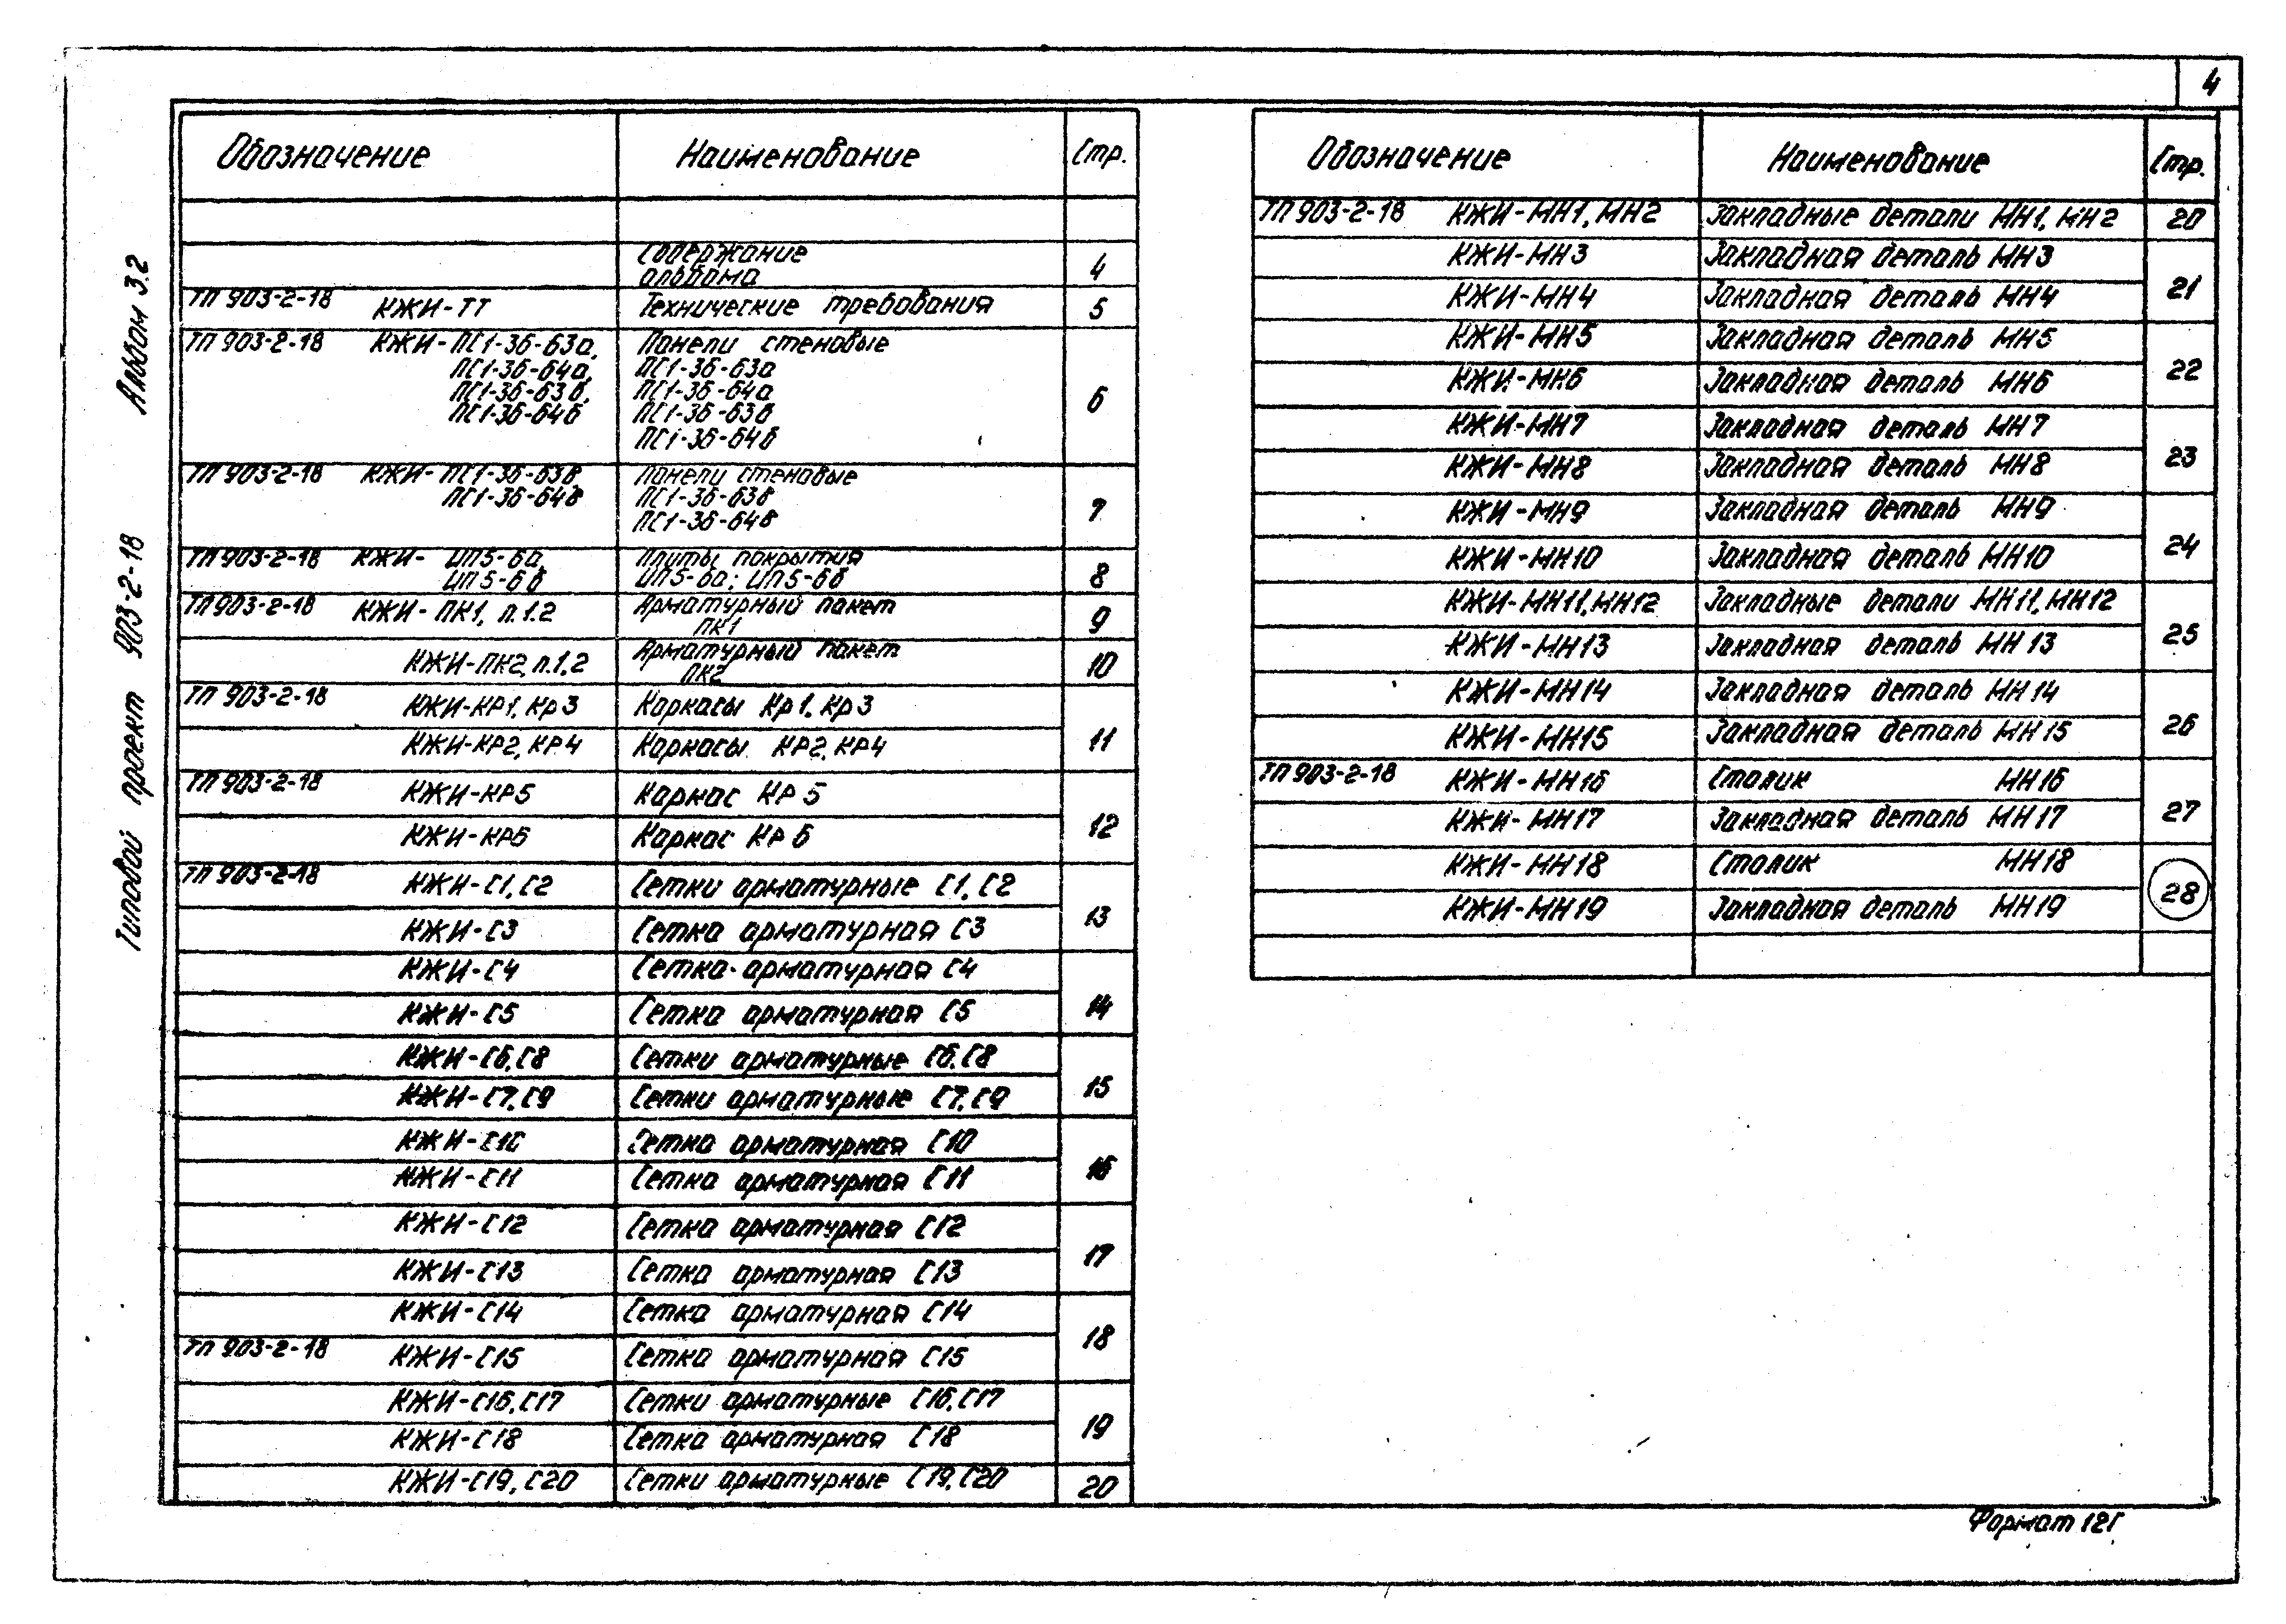 4
Альбом 3.2
Типовой проект 903-2-18
Обозначение Наименование Стр.
Содержание
альбома 4
ТП 903-2-18 КЖИ-ТТ Технические требования 5
ТП 903-2-18 КЖИ-ПС1-36-63а, Панели стеновые
ПС1-36-64а, ПС1-36-63а
ПС1-36-63б, ПС1-36-64а
ПС1-36-64б ПС1-36-63б 6
ПС1-36-64б
ТП 903-2-18 КЖИ-ПС1-36-63в, Панели стеновые
ПС1-36-64в ПС1-36-63в
ПС1-36-64в 7
ТП 903-2-18 КЖИ- ИП5-6а, Плиты покрытия
ИП5-6б ИП5-6а; ИП5-6б 8
ТП 903-2-18 КЖИ-ПК1, л.1.2 Арматурный пакет
ПК1 9
КЖИ-ПК2, л.1,2 Арматурный пакет
ПК2 10
ТП 903-2-18 КЖИ-КР1, Кр3 Каркасы Кр1, Кр3
КЖИ-КР2, КР4 Каркасы КР2, КР4 11
ТП 903-2-18 КЖИ-КР5 Каркас КР5
КЖИ-КР6 Каркас КР6 12
ТП 903-2-18 КЖИ-С1, С2 Сетки арматурные С1, С2
КЖИ-С3 Сетка арматурная С3 13
КЖИ-С4 Сетка арматурная С4
КЖИ-С5 Сетка арматурная С5 14
КЖИ-С6, С8 Сетки арматурные С6, С8
КЖИ-С7, С9 Сетки арматурные С7, С9 15
КЖИ-С10 Сетка арматурная С10
КЖИ-С11 Сетка арматурная С11 16
КЖИ-С12 Сетка арматурная С12
КЖИ-С13 Сетка арматурная С13 17
КЖИ-С14 Сетка арматурная С14
ТП 903-2-18 КЖИ-С15 Сетка арматурная С15 18
КЖИ-С16, С17 Сетки арматурные С16, С17
КЖИ-С18 Сетка арматурная С18 19
КЖИ-С19, С20 Сетки арматурные С19, С20 20
Обозначение Наименование Стр.
ТП 903-2-18 КЖИ-МН1, МН2 Закладные детали МН1, МН2 20
КЖИ-МН3 Закладная деталь МН3
КЖИ-МН4 Закладная деталь МН4 21
КЖИ-МН5 Закладная деталь МН5
КЖИ-МН6 Закладная деталь МН6 22
КЖИ-МН7 Закладная деталь МН7
КЖИ-МН8 Закладная деталь МН8 23
КЖИ-МН9 Закладная деталь МН9
КЖИ-МН10 Закладная деталь МН10 24
КЖИ-МН11, МН12 Закладные детали МН11, МН12
КЖИ-МН13 Закладная деталь МН13 25
КЖИ-МН14 Закладная деталь МН14
КЖИ-МН15 Закладная деталь МН15 26
ТП 903-2-18 КЖИ-МН16 Столик МН16
КЖИ-МН17 Закладная деталь МН17 27
КЖИ-МН18 Столик МН18
КЖИ-МН19 Закладная деталь МН19 28
Формат 12Г